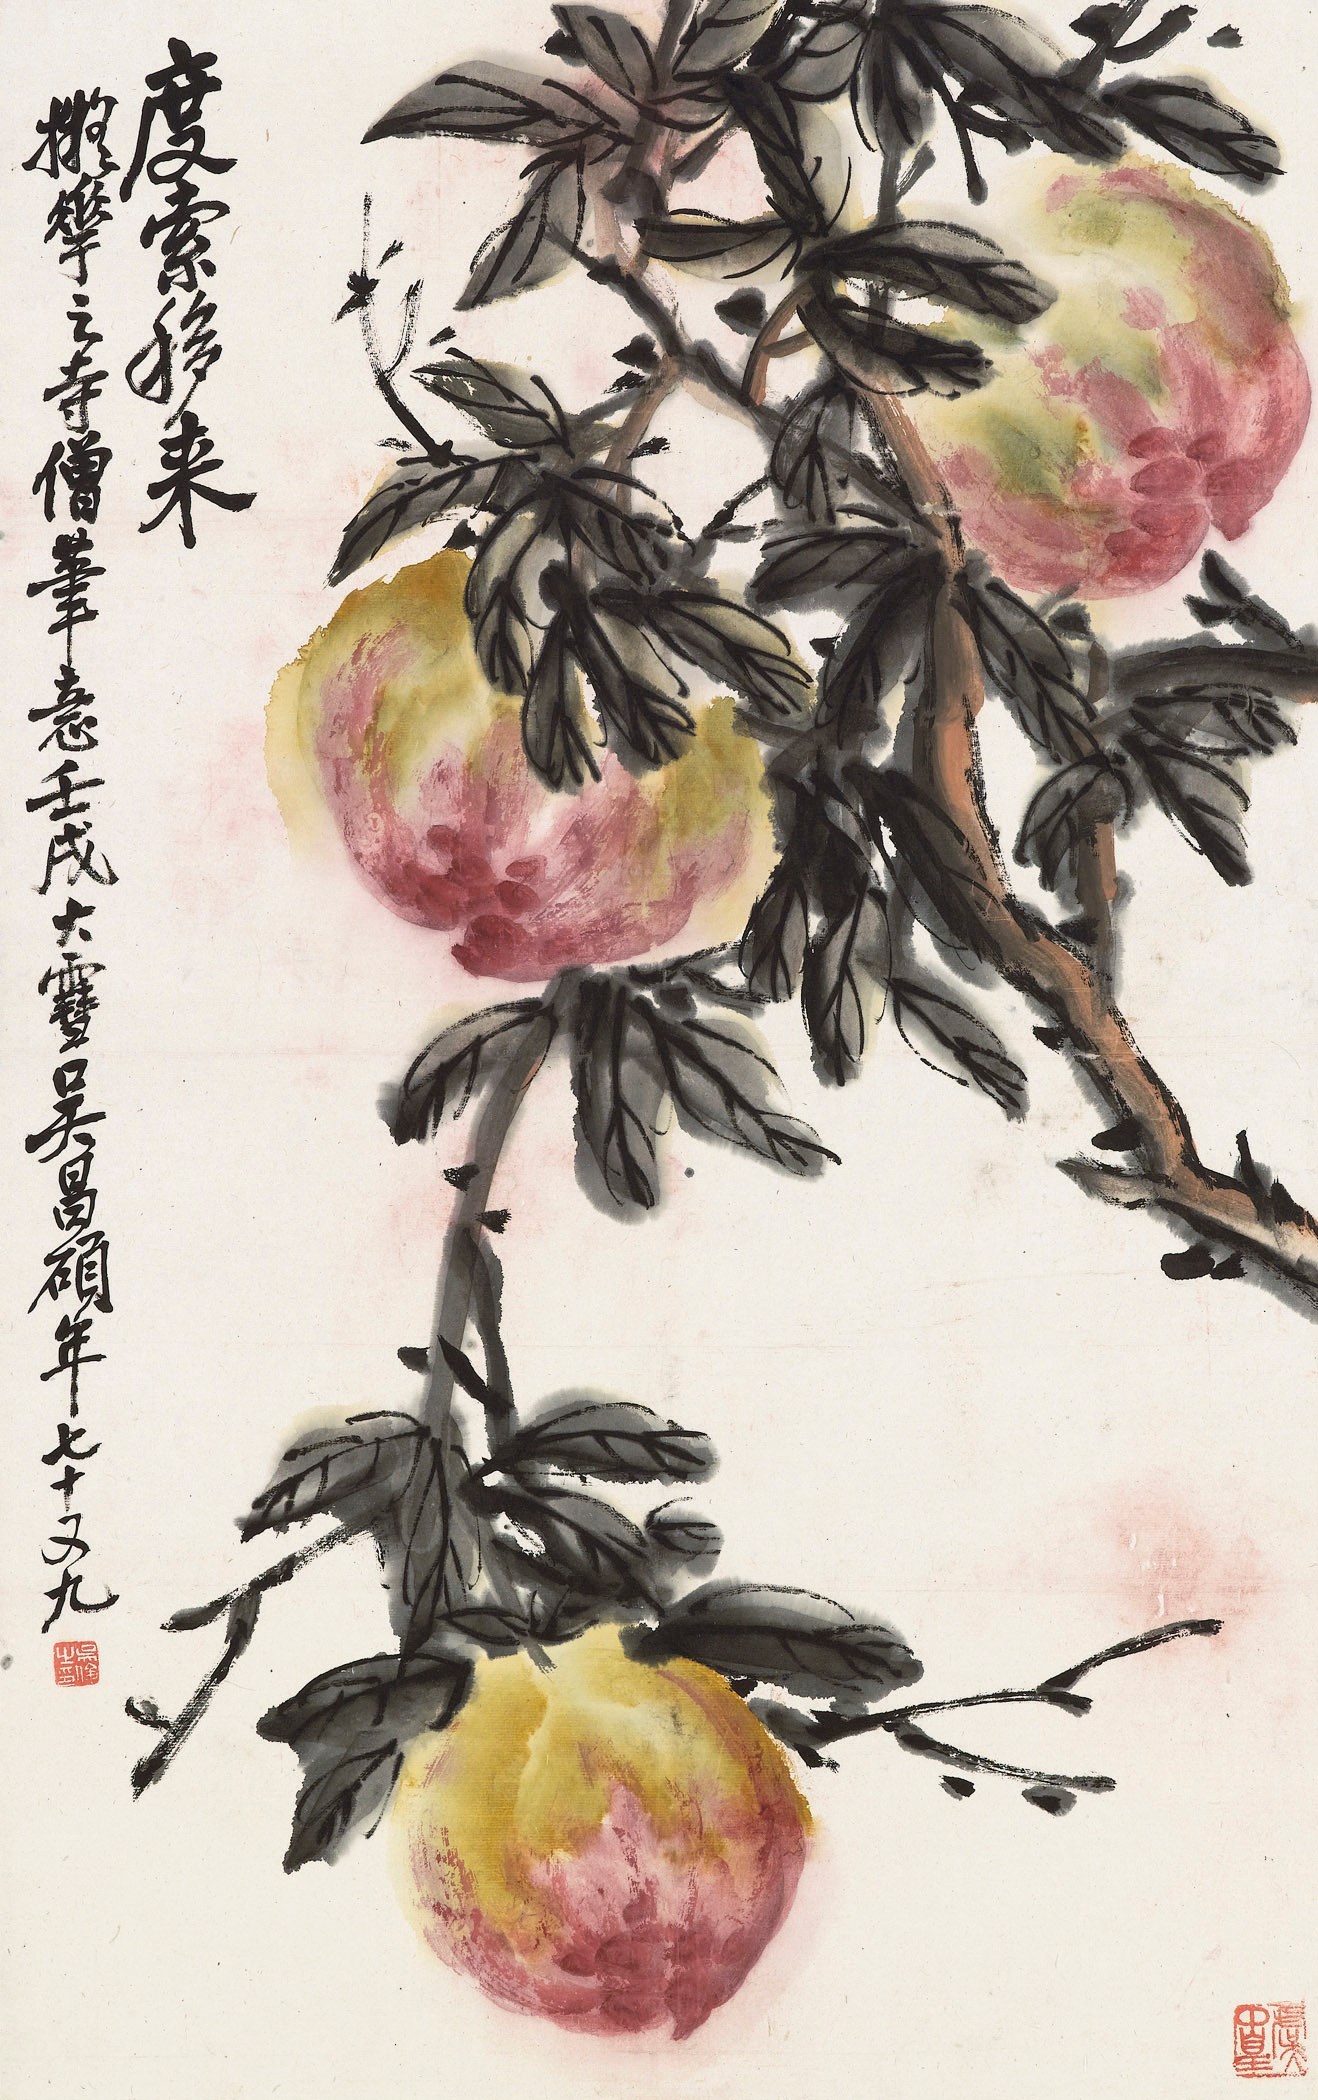 度索移来
擬華之寺僧筆意壬戌大雪吳昌碩年七十又九
吳俊之印